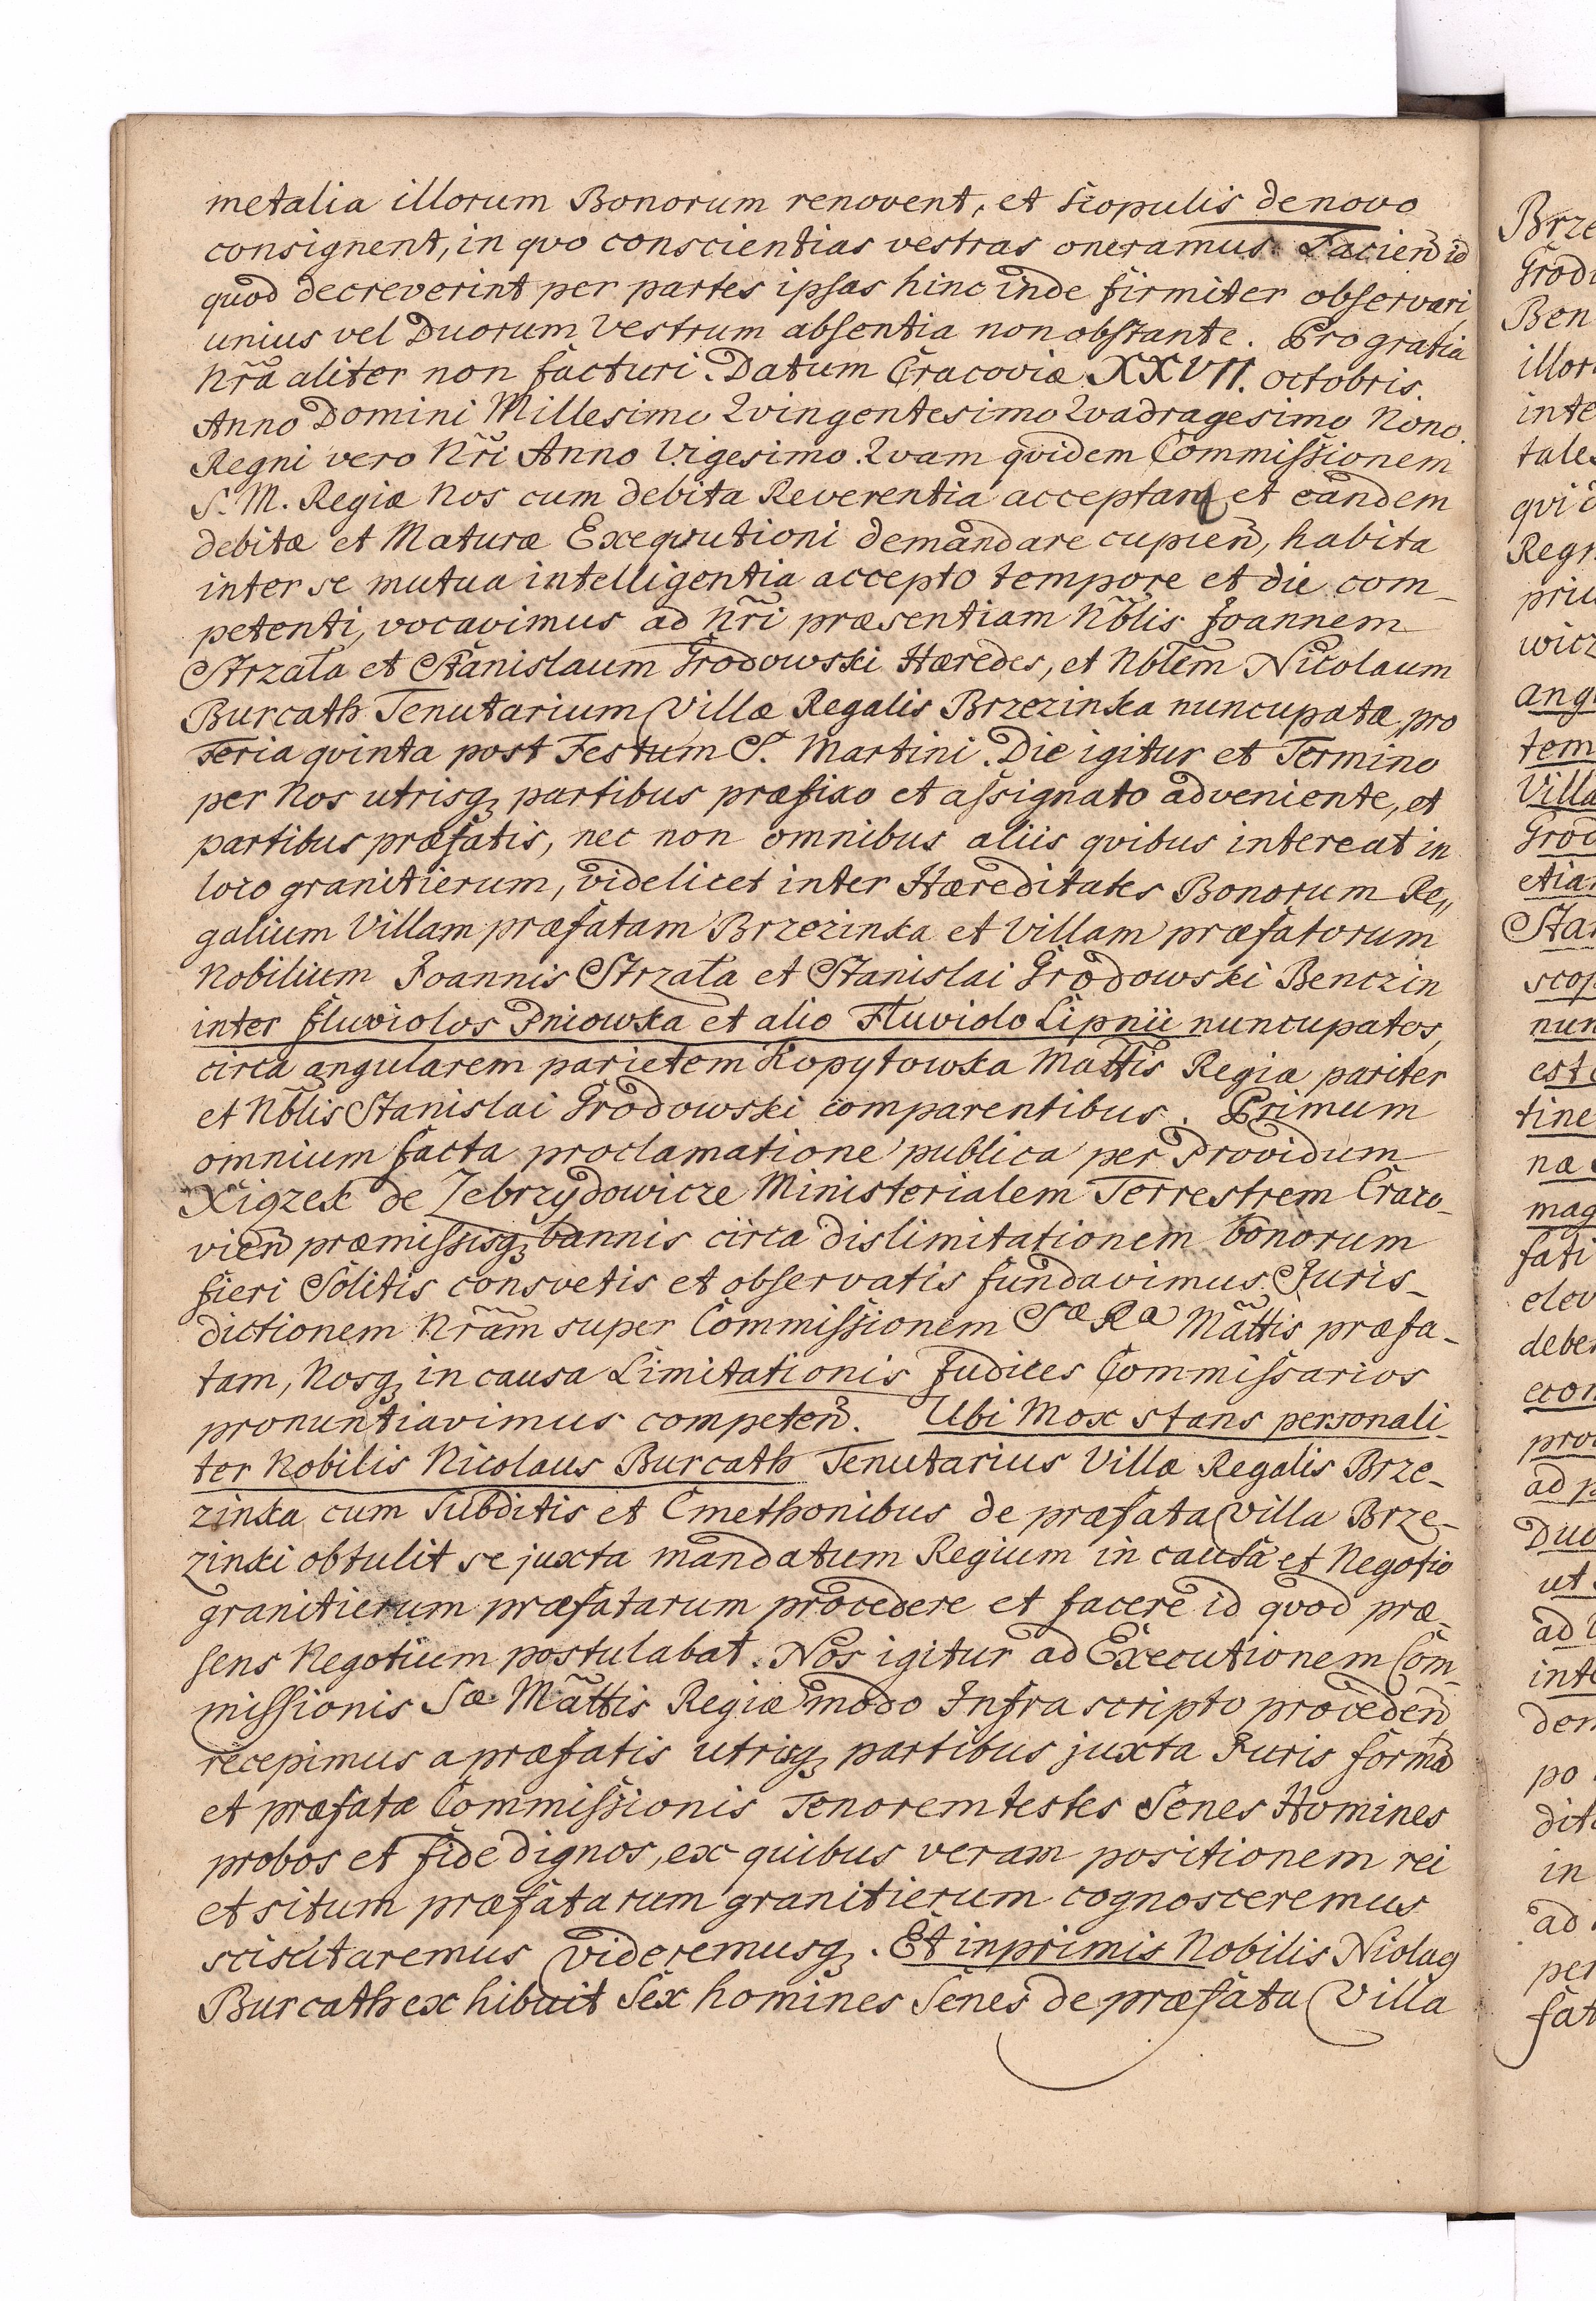 metalia illorum Bonorum renovent, et scopulis denovo
consignent, in qvo conscientias vestras oneramus. Facien̄ id
quod decreverint per partes ipsas hinc inde firmiter observari,
unius vel Duorum Vestrum absentia non obstante. Pro gratia
Nr̃a aliter non facturi. Datum Cracoviæ XXVII. octobris.
Anno Domini Millesimo Qvingentesimo Qvadragesimo Nono.
Regni vero Nr̃i Anno Vigesimo. Qvam qvidem Commissionem
S. M. Regiæ Nos cum debita Reverentia acceptam et eandem
debitæ et Maturæ Exeqvutioni demandare cupien̄, habita
inter se mutua intelligentia accepto tempore et die com-
petenti, vocavimus ad Nr̃i præsentiam Nb̃lis Joannem
Strzała et Stanislaum Grodowski Hæredes, et Nbl̃em Nicolaum
Burcath Tenutarium Villæ Regalis Brzezinka nuncupatæ, pro
Feria qvinta post Festum S. Martini. Die igitur et Termino
per Nos utrisqȝ partibus præfixo et assignato adveniente, et
partibus præfatis, nec non omnibus aliis qvibus intereat in
loco granitierum, videlicet inter Hæreditates Bonorum Re„
galium Villam præfatam Brzezinka et Villam præfatorum
Nobilium Joannis Strzała et Stanislai Grodowski Benczin
inter fluviolos Pniowka et alio Fluviolo Lipnii nuncupatos,
circa angularem parietem Kopytowka Mattis Regiæ pariter
et Nb̃lis Stanislai Grodowski comparentibus. Primum
omnium facta proclamatione publica per Providum
Xiązek de Zebrzydowicze Ministerialem Terrestrem Craco-
vien̄ præmissisqȝ bannis circa dislimitationem bonorum
fieri Solitis consvetis et observatis fundavimus Juris-
dictionem Nr̃am super Commissionem Sæ Ræ Mattis præfa-
tam, Nosqȝ in causa Limitationis Judices Commissarios
pronuntiavimus competen̄. Ubi Mox stans personali-
ter Nobilis Nicolaus Burcath Tenutarius Villæ Regalis Brze-
zinka cum Subditis et Cmethonibus de præfata Villa Brze-
zinki obtulit se juxta mandatum Regium in causa et Negotio
granitierum præfatarum procedere et facere id qvod præ-
sens Negotium postulabat. Nos igitur ad Executionem Com-
missionis Sæ Mattis Regiæ modo Infra scripto proceden̄
recepimus a præfatis utrisqȝ partibus juxta Juris formā
et præfatæ Commissionis Tenorem testes Senes Homines
probos et fide dignos, ex quibus veram positionem rei
et situm præfatarum granitierum cognosceremus
scisutaremus Videremusqȝ. Et inprimis Nobilis Niolaꝯ
Burcath exhibuit Sex homines Senes de præfata Villa